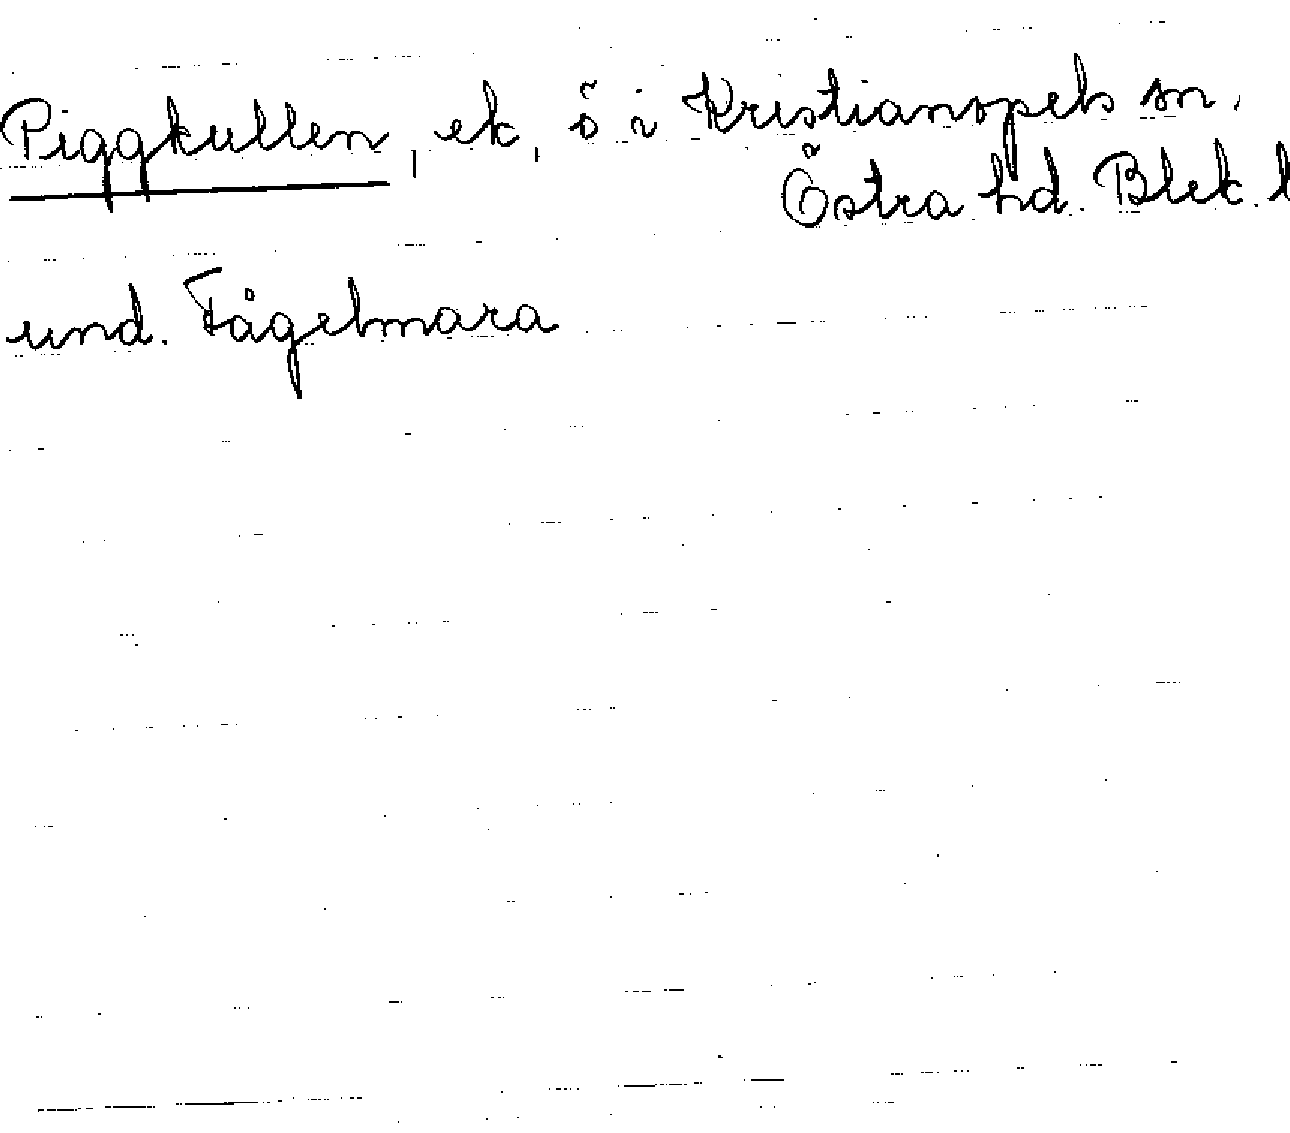 Piggkullen, ek, ö i Kristianopels sn.
Östra hd. Blek. l
und. Fågelmara